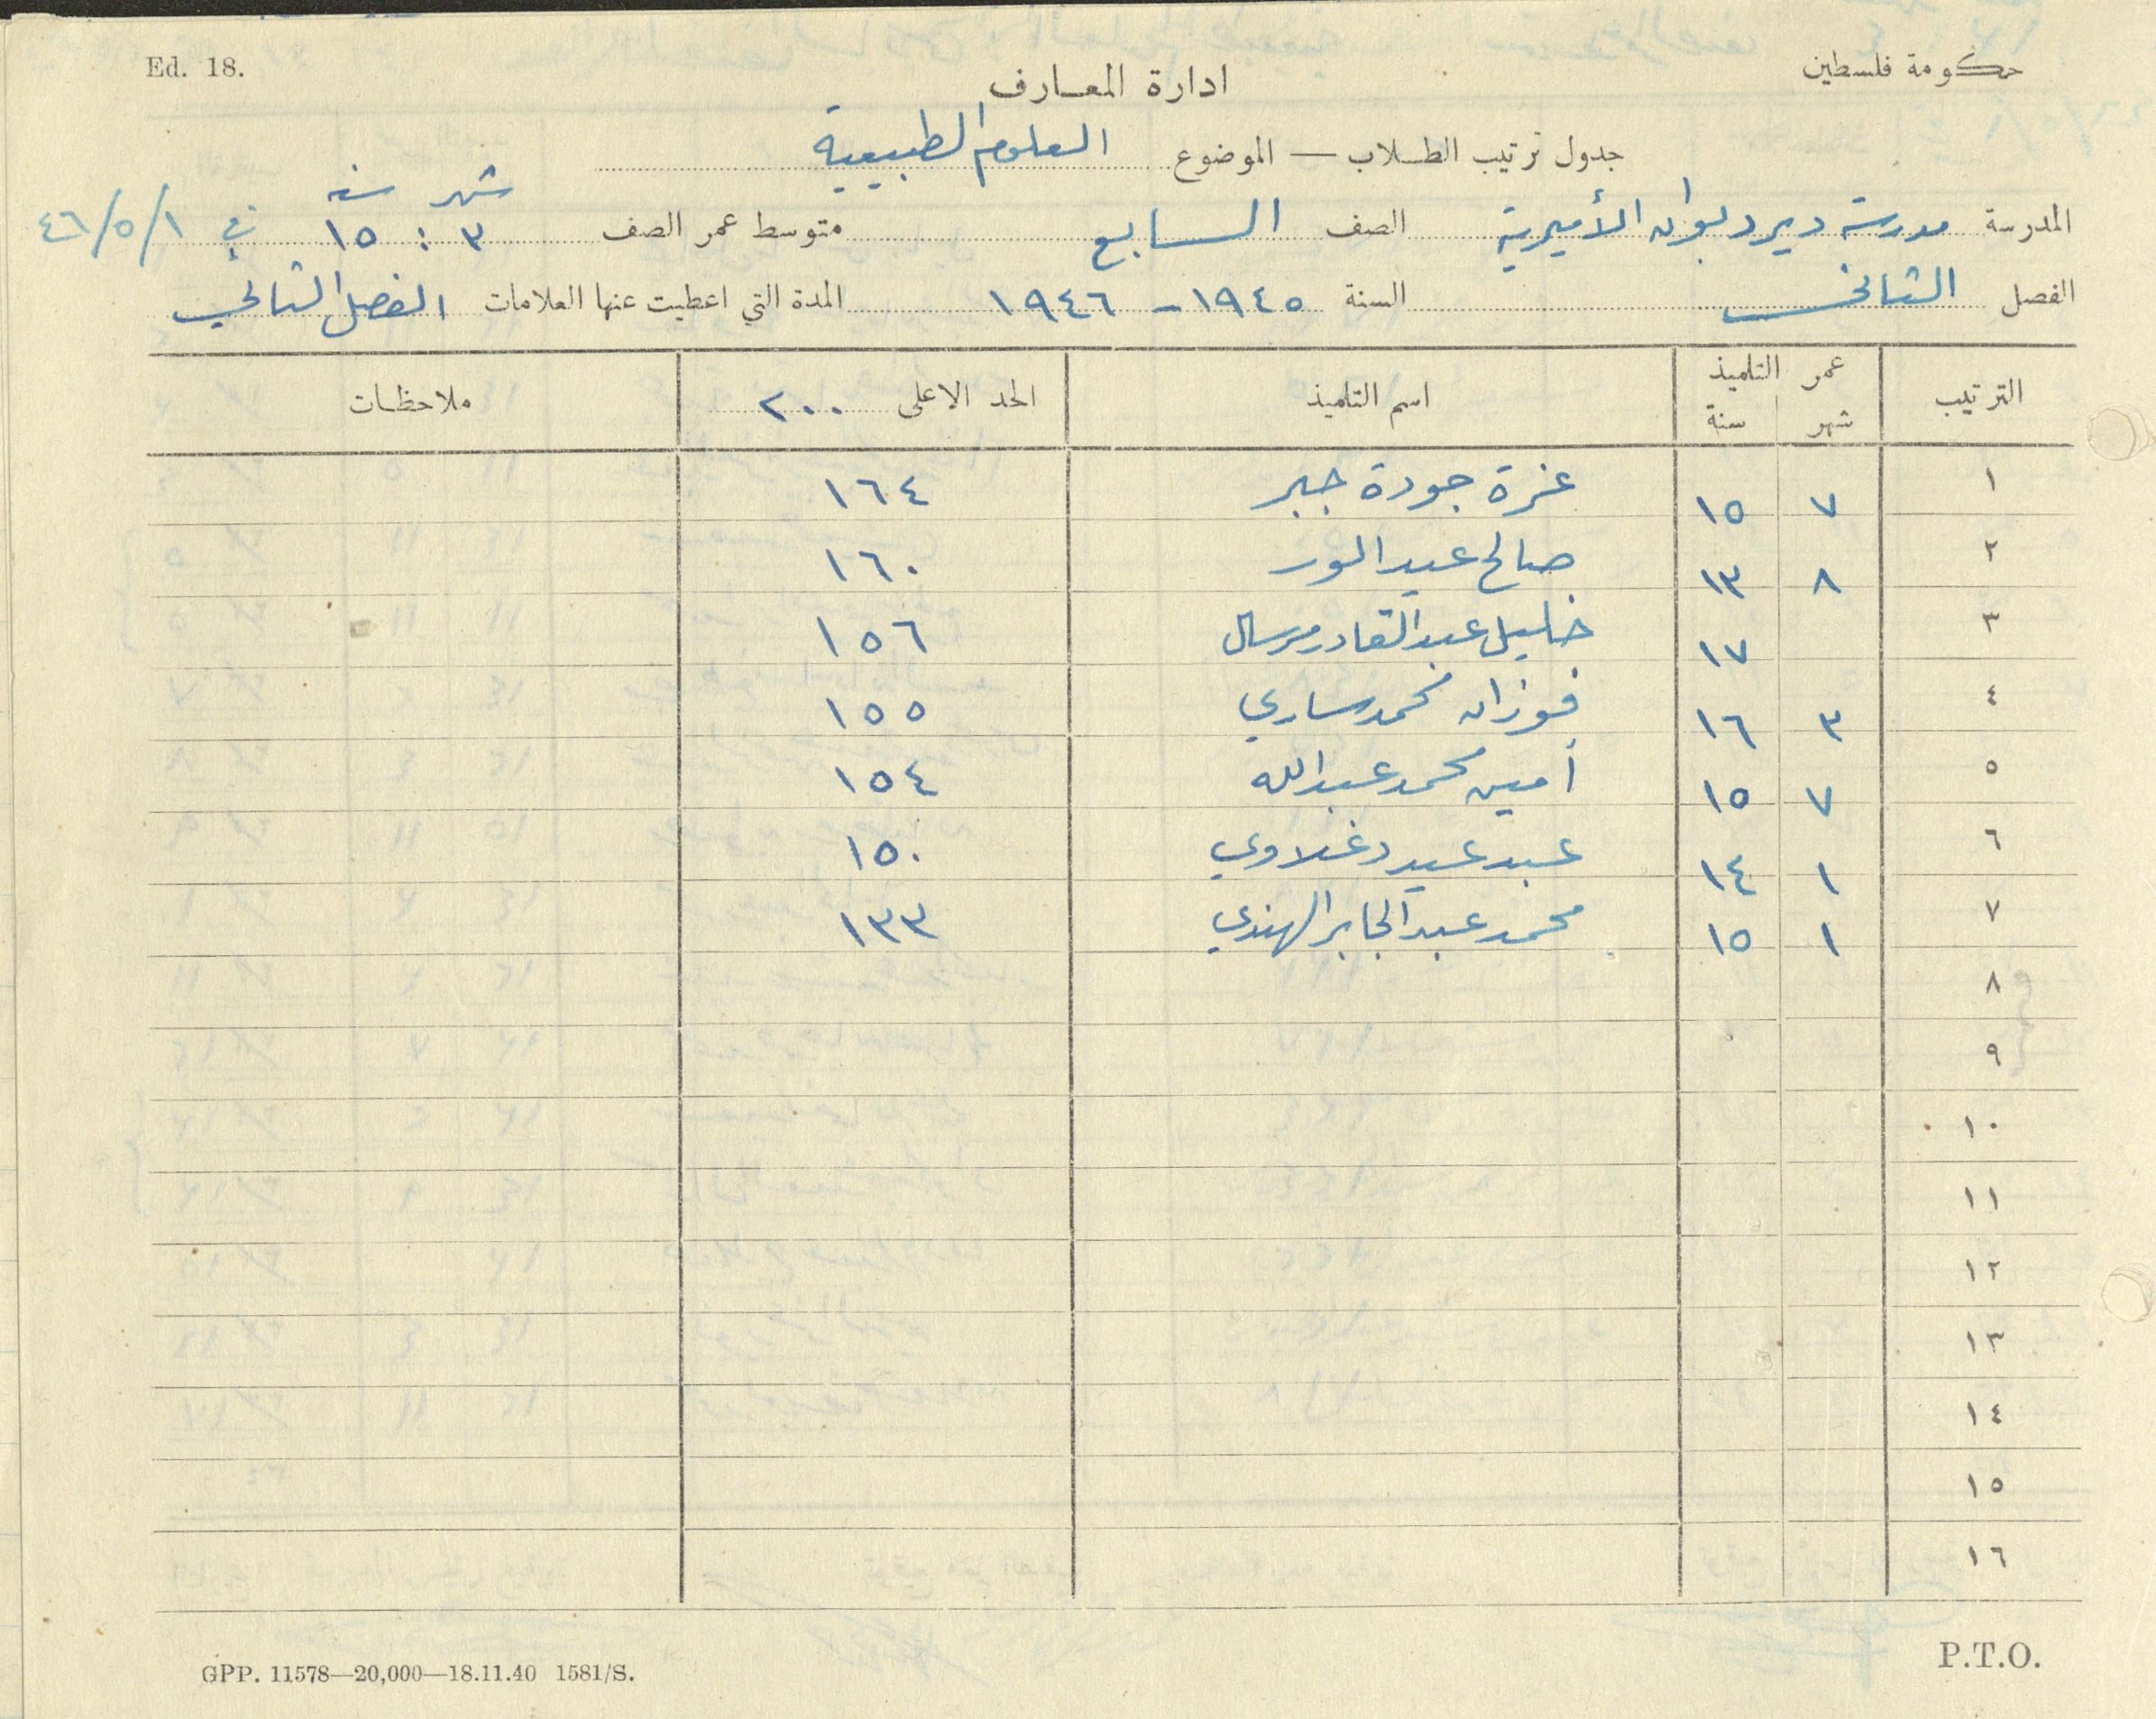 Ed. 18.
حكومة فلسطين
ادارة المعارف
جدول ترتيب الطلاب — الموضوع العلوم الطبيعية
المدرسة مدرسة دير ديوان الأميرية الصف السابع متوسط عمر الصف شهر ٣ : سنه ١٥ في ٤٦/٥/١
الفصل الثاني السنة ١٩٤٥ - ١٩٤٦ المدة التي اعطيت عنها العلامات الفصل الثاني
الترتيب عمر التلميذ شهر سنة اسم التلميذ الحد الاعلى ٢٠٠ ملاحظات
١ ٧ ١٥ عزة جودة جبر ١٦٤
٢ ٨ ١٣ صالح عبد ١٦٠
٣ ١٧ خليل عبد القادر ١٥٦
٤ ٣ ١٦ فوزان محمد ساري ١٥٥
٥ ٧ ١٥ أمين محمد عبدالله ١٥٤
٦ ١ ١٤ عبد عيد دغلاوي ١٥٠
٧ ١ ١٥ محمد عبد الجابر الهندي ١٣٣
٨
٩
١٠
١١
١٢
١٣
١٤
١٥
١٦
GPP. 11578—20,000—18.11.40 1581/S.
P.T.O.